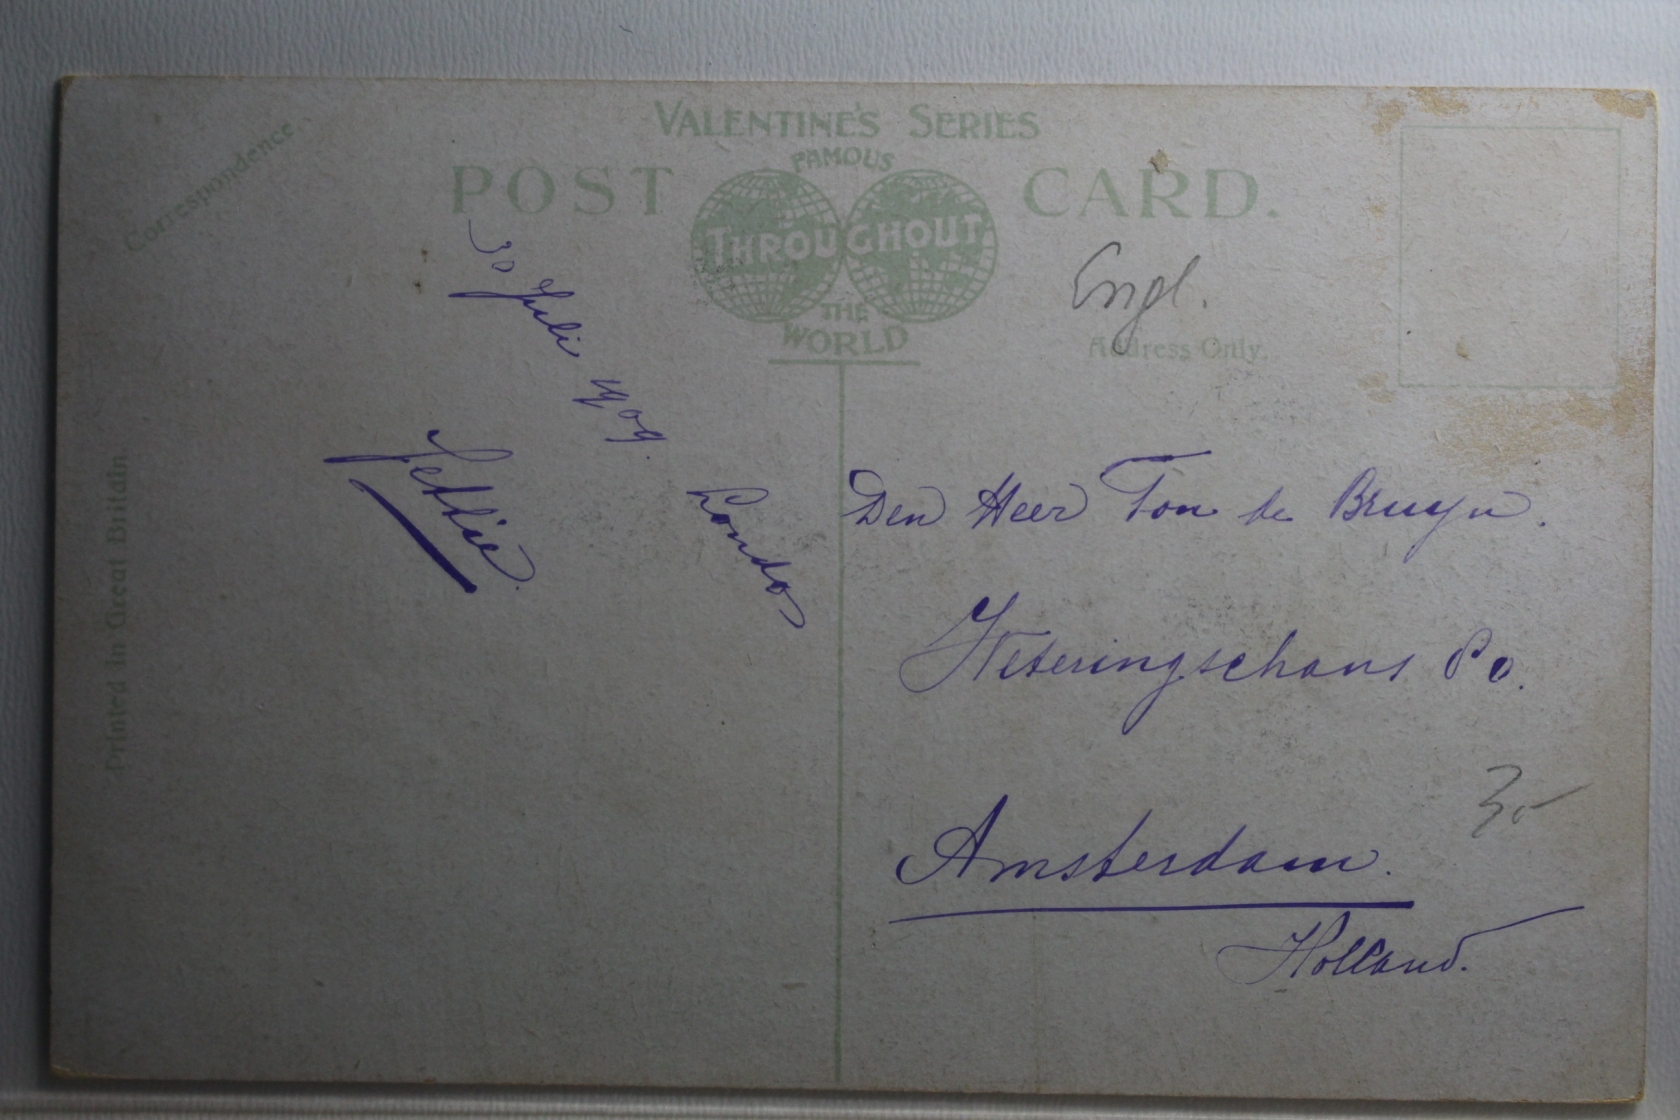 Correspondence.
VALENTINE'S SERIES
FAMOUS
POST CARD.
THROUGHOUT
THE
WORLD
Engl.
Address Only.
Printed in Great Britain.
30 Juli 1909
London
Jettie
Den Heer Ton de Bruyn.
Weteringschans 80.
Amsterdam.
Holland.